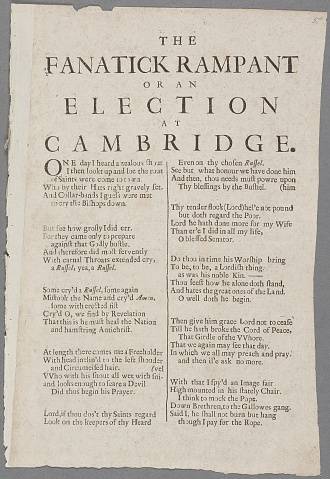 THE
FANATICK RAMPANT
OR AN
ELECTION
AT
CAMBRIDGE.
ONE day I heard a zealous shout
I then look up and loe the rout
of Saints were come to town
Who by their Hats right gravely set,
And Collar-bands I guess were met
to vote the Bishops down.
But see how grosly I did err.
For they came only to prepare
against that Godly bustle.
And therefore did most fervently
With carnal Throats extended cry,
a Russel, yea, a Russel.
Some cry'd a Russel, some again
Mistook the Name and cry'd Amen,
some with erected fist
Cry'd O, we find by Revelation
That this is he must heal the Nation
and hamstring Antichrist.
At length there comes me a Freeholder
With head inclin'd to the left shoulder
and Circumcised hair.
Who with his snout all wet with
and looks enough to scare a Devil
Did thus begin his Prayer.
Lord, if thou dost thy Saints regard
Look on the keepers of thy Heard
Even on thy chosen Russel.
See but what honour we have done him
And then, thou needs must powre upon
Thy blessings by the Bushel. (him
Thy tender flock (Lord) hel'e not pound
but doth regard the Poor.
Lord he hath done more for my Wife
Than er'e I did in all my life,
O blessed Senator.
Do thou in time his Worship bring
To be, to be, a Lordish thing
as was his noble Kin.
Thou seest how he alone doth stand,
And hates the great ones of the Land.
O well doth he begin.
Then give him grace Lord not to cease
Till he hath broke the Cord of Peace,
That Girdle of the VVhore.
That we again may see that day.
In which we all may preach and pray
and then i'le ask no more.
With that I spy'd an Image fair
High mounted in his stately Chair.
I think to mock the Pope.
Down Brethren, to the Gallowes gang.
Said I, he shall not burn but hang
though I pay for the Rope.